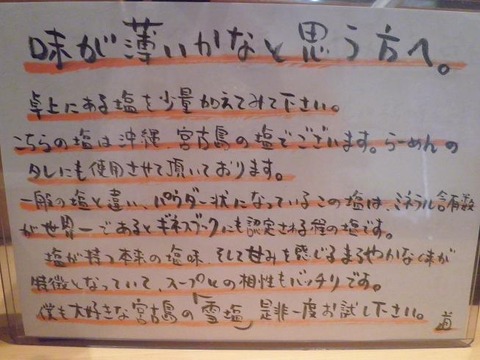 味が薄いかなと思う方へ。
卓上にある塩を少量加えてみて下さい。
こちらの塩は沖縄、宮古島の塩でございます。らーめんの
タレにも使用させて頂いております。
一般の塩と違い、パウダー状になっているこの塩は、ミネラル含有数
が世界一であるとギネスブックにも認定される程の塩です。
塩が持つ本来の塩味、そして甘みを感じるまろやかな味が
特徴となっていて、スープとの相性もバッチリです。
僕も大好きな宮古島の「雪塩」是非一度お試し下さい。
道